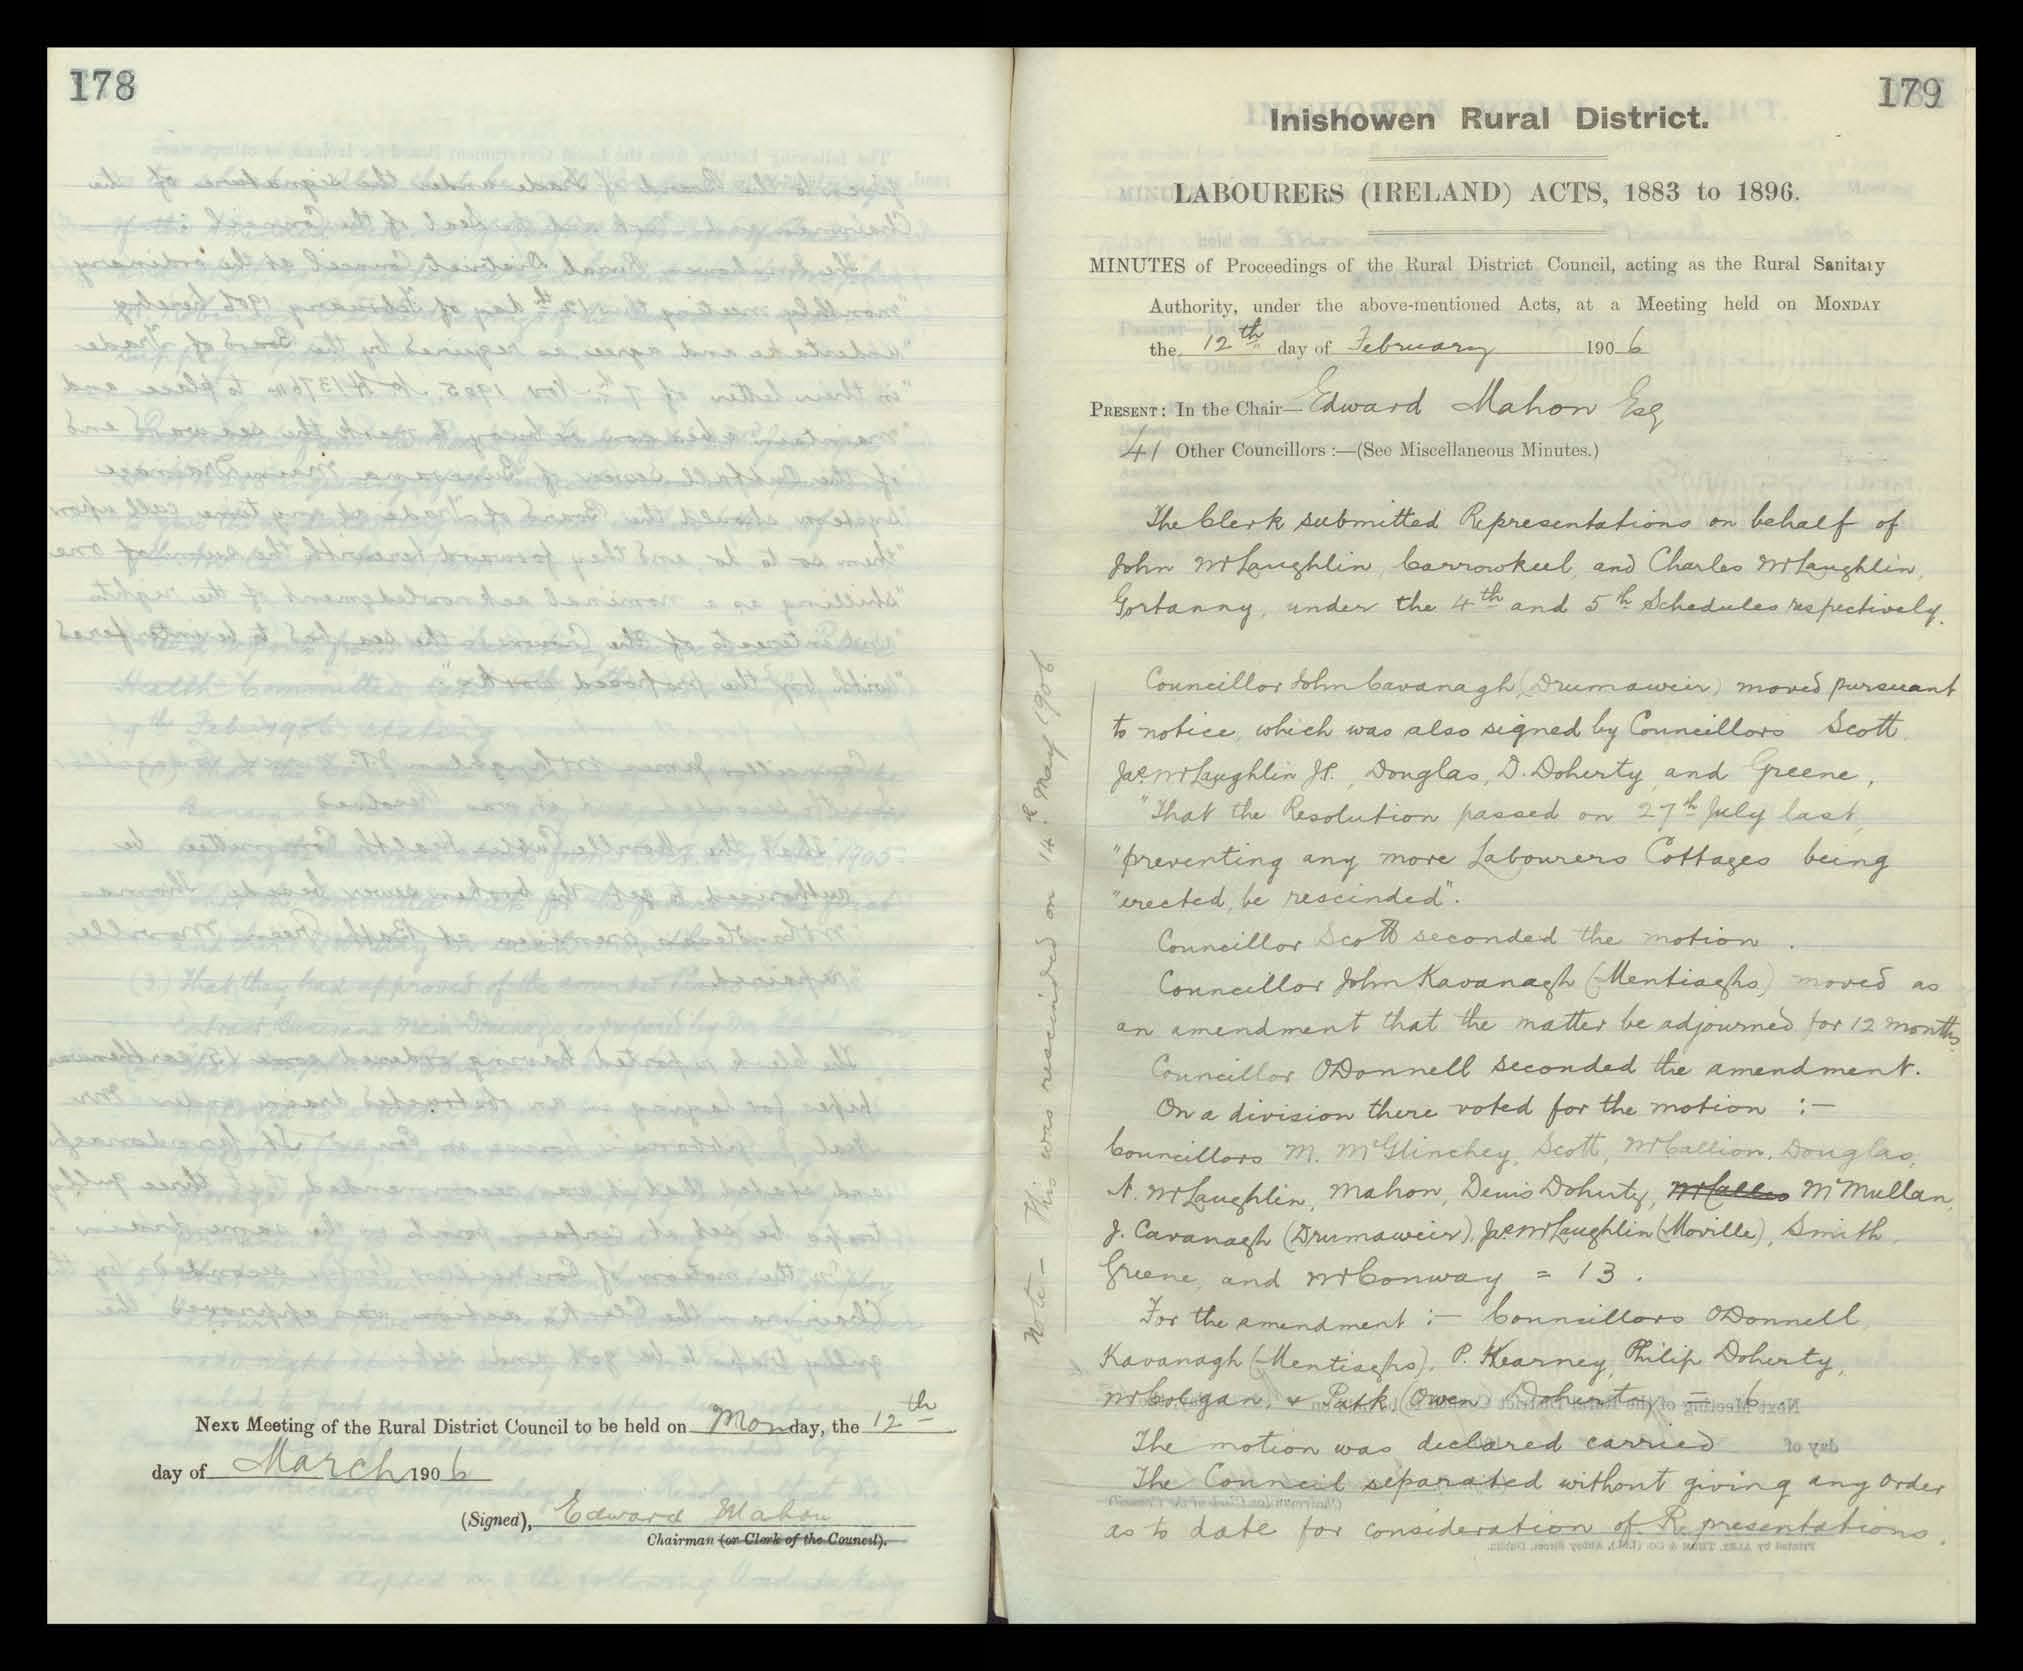 178
Next Meeting of the Rural District Council to be held on Monday, the 12th
day of March 1906
(Signed), Edward Mahon
Chairman (or Clerk of the Council).
179
Inishowen Rural District.
LABOURERS (IRELAND) ACTS, 1883 to 1896.
MINUTES of Proceedings of the Rural District Council, acting as the Rural Sanitary
Authority, under the above-mentioned Acts, at a Meeting held on MONDAY
the 12th day of February 1906
PRESENT: In the Chair—Edward Mahon Esq
41 Other Councillors :—(See Miscellaneous Minutes.)
The Clerk submitted Representations on behalf of
John McLaughlin, Carrowkeel, and Charles McLaughlin,
Gortanny, under the 4th and 5th Schedules respectively.
Councillor John Cavanagh (Drumaweir) moved pursuant
to notice, which was also signed by Councillors Scott,
Jas McLaughlin J.P., Douglas, D. Doherty, and Greene,
"That the Resolution passed on 27th July last,
"preventing any more Labourers Cottages being
"erected, be rescinded".
Councillor Scott seconded the motion.
Councillor John Kavanagh (Mentiaghs) moved as
an amendment that the matter be adjourned for 12 months.
Councillor O'Donnell seconded the amendment.
On a division there voted for the motion :—
Councillors M. McGlinchey, Scott, McCallion, Douglas,
N. McLaughlin, Mahon, Denis Doherty, McMullan,
J. Cavanagh (Drumaweir), Jas McLaughlin (Moville), Smith,
Greene, and McConway = 13.
For the amendment :— Councillors O'Donnell,
Kavanagh (Mentiaghs), P. Kearney, Philip Doherty,
McColgan, & Patk (Owen) Doherty = 6.
The motion was declared carried
The Council separated without giving any order
as to date for consideration of Representations.
Note— This was rescinded on 14th May 1906